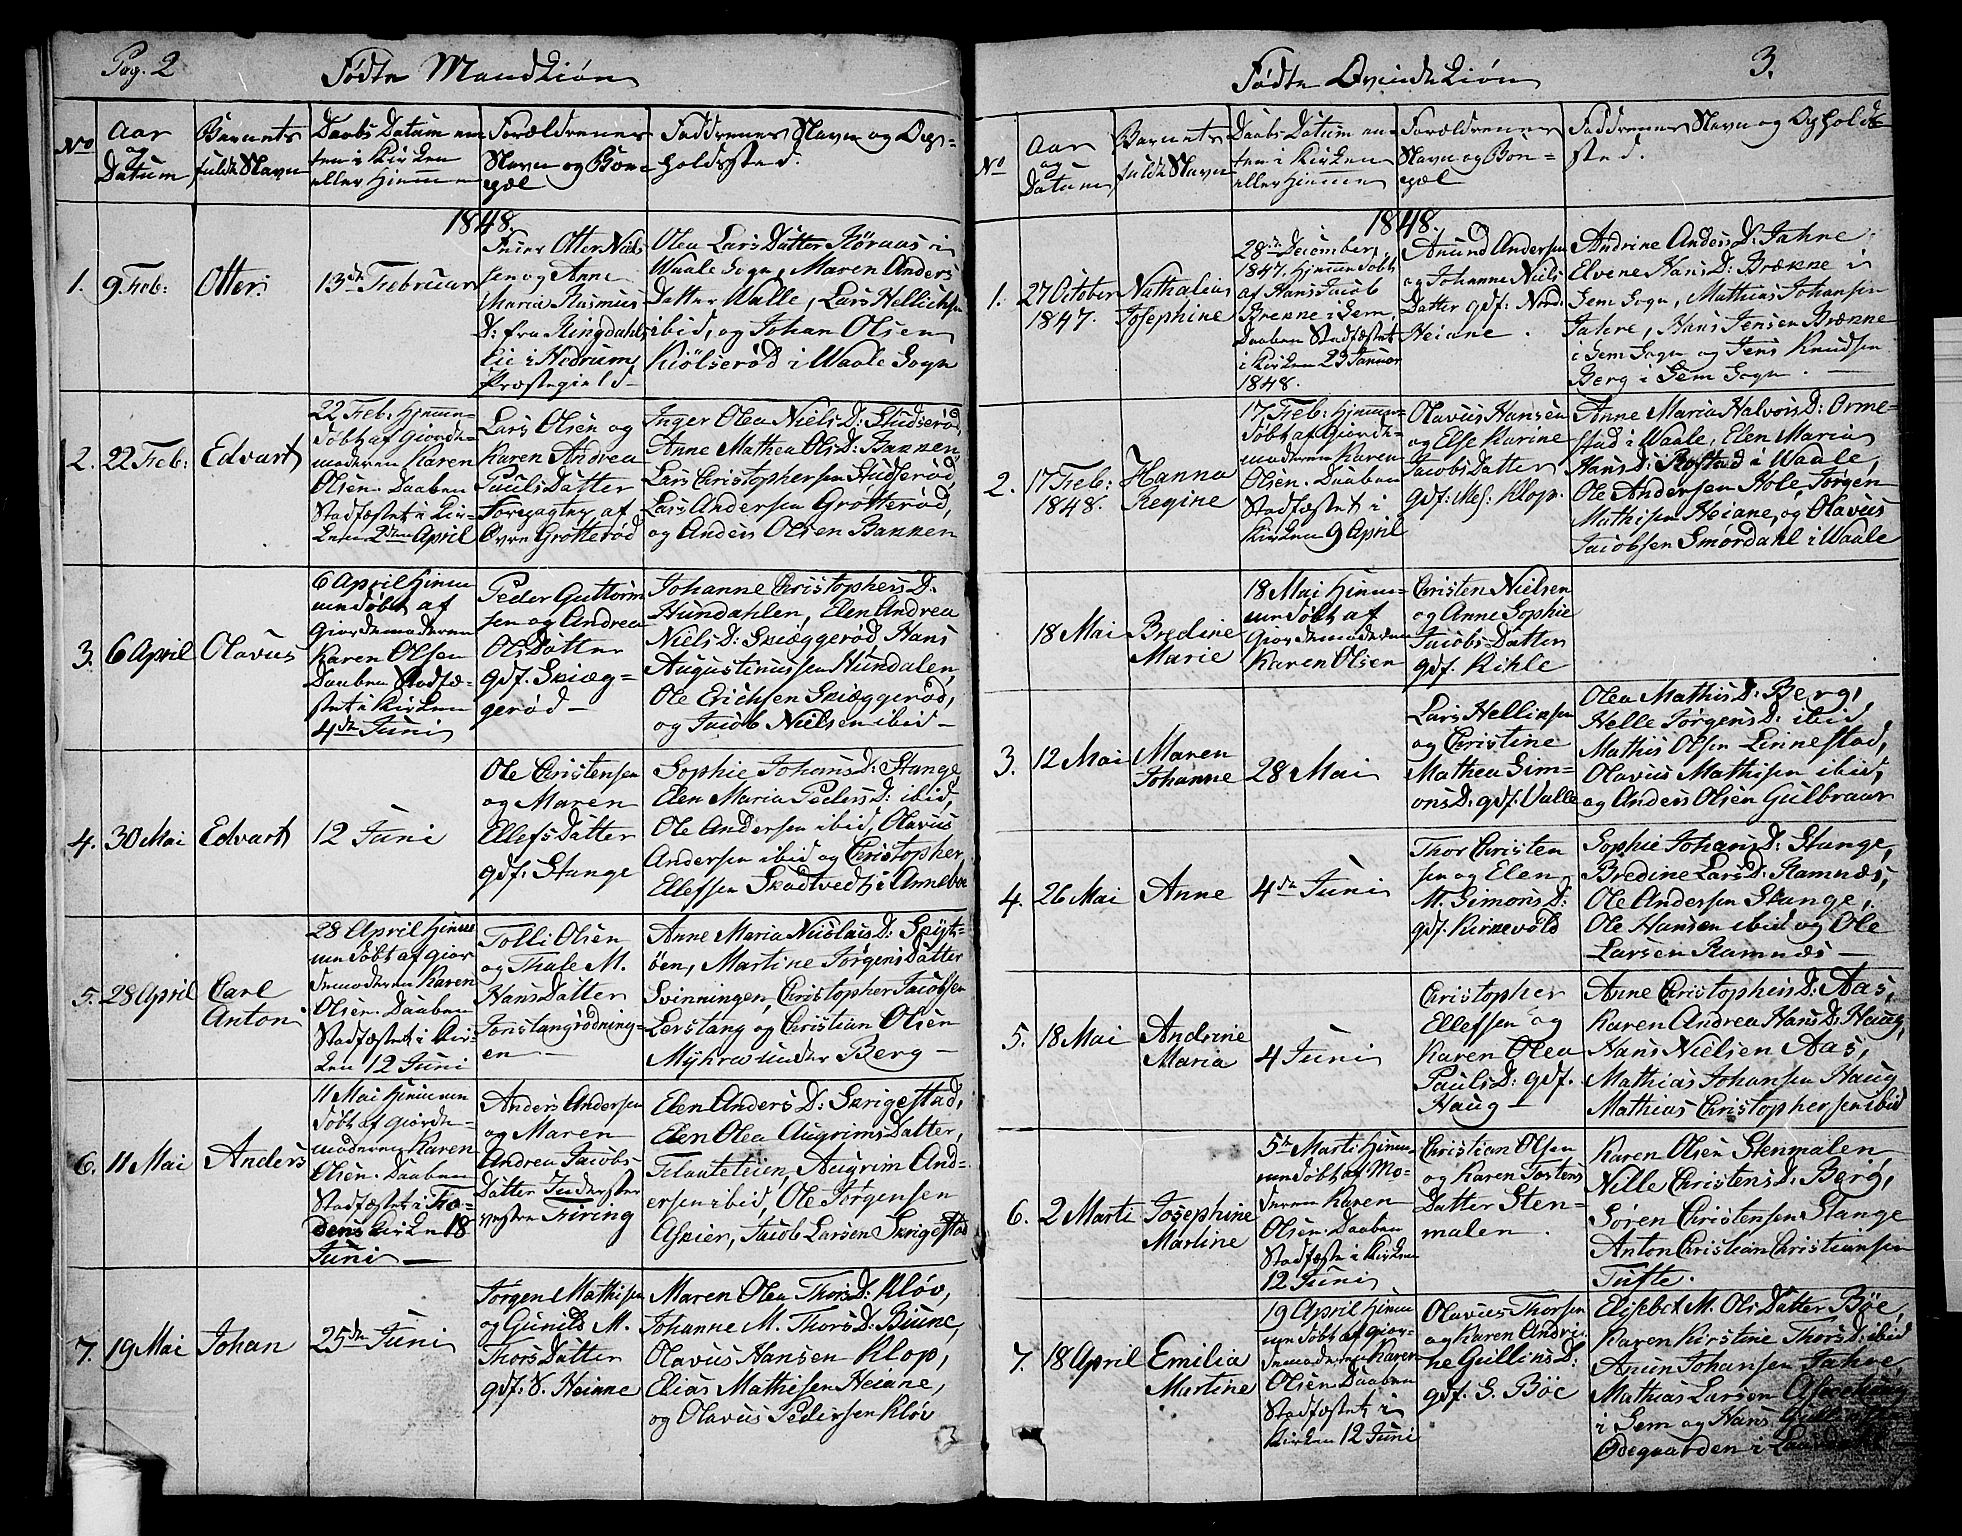 Pag. 2
Födte Mandkiön
No
Aar
og
Datum
Barnets
fulde Navn
Daabs Datum en
ten i Kirken
eller Hjemme
Forældrenes
Navn og Bon-
pæl
Faddrenes Navn og Op-
holdssted.
1848.
1.
9 Feb:
Otter.
13de Februar
Otter Niel-
sen og Anne
Maria Rasmus
D: fra Ringdahls
Eie i Hedrums
Præstegield-
Olea Lars Datter Röraas i
Waale Sogn, Maren Anders
Datter Walle, Lars Hellichsen
ibid, og Johan Olsen
Kiölseröd i Waale Sogn
2.
22 Feb:
Edvart
22 Feb: Hjemme
döbt af Giorde-
moderen Karen
Olsen. Daaben
Stadfæstet i Kir-
ken 2den April
Lars Olsen og
Karen Andrea
Pauls Datter
af
Övre Grotteröd
Inger Olea Niels D: Studseröd,
Anne Mathea Ols D: Bakken,
Lars Christophersen Studseröd,
Lars Andersen Grotteröd,
og Anders Olsen Bakken
3.
6 April
Olavus
6 April Hjem-
men döbt af
Giordemoderen
Karen Olsen
Daaben Stadfæ-
stet i Kirken
4de Juni
Peder Guttorm
sen og Andrea
Ols Datter
gdf. Skiæg-
geröd-
Johanne Christophers D:
Hundahlen, Elen Andrea
Niels D: Skiæggeröd Hans
Augustinussen Hundalen,
Ole Erichsen Skiæggeröd,
og Jacob Nielsen ibid-
4.
30 Mai
Edvart
12 Juni
Ole Christensen
og Maren
Ellefs Datter
gdf. Stange
Sophie Johans D: Stange
Elen Maria Peders D: ibid,
Ole Andersen ibid, Olavus
Andersen ibid og Christopher
Ellefsen Skadtvedt i Anneboe
5.
28 April
Carl
Anton
28 April Hjem
men döbt af Gior
demoderen Karen
Olsen. Daaben
Stadfæstet i Kir-
ken 12 Juni
Tolli Olsen
og Thale M.
Hans Datter
Jonstangrödning-
en-
Anne Maria Nicolais D: Spijt-
öen, Martine Jörgens Datter
Svinningen, Christopher Jacobsen
Lerstang og Christian Olsen
Myhra under Berg-
6.
11 Mai
Anders
11 Mai Hjemmen
döbt af Giorde-
moderen Karen
Olsen. Daaben
Stadfæstet i Fo-
dens Kirken 18
Juni-
Anders Andersen
og Maren
Andrea Jacobs-
Datter Inderster
vestre Firing
Elen Anders D: Skrigestad,
Elen Olea Augrims Datter,
Flauteteien, Augrim And-
ersen ibid, Ole Jörgensen
Askier, Jacob Larsen Skrigestad
7.
19 Mai
Johan
25de Juni
Jörgen Mathisen
og Gunild M.
Thors Datter
gdf. S. Heiane
Maren Olea Thors D: Klöv,
Johanne M. Thors D: Biune,
Olavus Hansen Klop,
Elias Mathisen Heiane,
og Olavus Pedersen Klöv
3.
Födte Qvindekiön
No
Aar
og
Datum
Barnets
fulde Navn
Daabs Datum en-
ten i Kirken
eller Hjemme
Forældrenes
Navn og Bon-
pæl
Faddrenes Navn og Ophold-
sted.
1848.
1.
27 October
1847.
Nathalias
Josephine
28de December
1847. Hjemme döbt
af Hans Jacob
Brekne i Sem,
Daaben Stadfæstet
i Kirken 23 Januar
1848.
Amund Andersen
og Johanne Niels
Datter gdf: Nord:
Heiane.
Andrine Anders D: Jahre
Elvene Hans D: Brekne i
Sem Sogn, Mathias Johansen
Jahre, Hans Jensen Brekne
i Sem Sogn og Jens Knudsen
Berg i Sem Sogn.-
2.
17 Feb:
1848.
Hanna
Regine
17 Feb: Hjemme
döbt af Giorde
moderen Karen
Olsen. Daaben
Stadfæstet i
Kirken 9 April
Olavus Hansen
og Else Karine
Jacobs Datter
gdf: Mes: Klop.
Anne Maria Halvors D: Orme-
stad i Waale, Elen Maria
Hans D: Rostad i Waale,
Ole Andersen Hole, Jörgen
Mathisen Heiane, og Olavus
Jacobsen Smördahl i Waale
18 Mai
Bredine
Marie
18 Mai Hjem-
men döbt af
Giordemoderen
Karen Olsen
Christen Nielsen
og Anne Sophie
Jacobs Datter
gdf. Kihle
3.
12 Mai
Maren
Johanne
28 Mai
Lars Hellinsen
og Christine
Mathea Sim-
ons D: gdf. Valle
Olea Mathis D: Berg,
Helle Jörgens D: ibid
Mathis Olsen Linnestad,
Olavus Mathisen ibid,
og Anders Olsen Gulbraar
4.
26 Mai
Anne
4de Juni
Thor Christen
sen og Elen
M. Simons D:
gdf. Kirkevold
Sophie Johans D: Stange,
Bredine Lars D: Ramnæs,
Ole Andersen Stange,
Ole Hansen ibid og Ole
Larsen Ramnæs-
5.
18 Mai
Andrine
Maria
4 Juni
Christopher
Ellefsen og
Karen Olea
Pauls D: gdf.
Haug-
Anne Christophers D: Aas,
Karen Andrea Hans D: Haug,
Hans Nielsen Aas,
Mathias Johansen Haug
Mathias Christophersen ibid
6.
2 Marti
Josephine
Martine
5te Marti Hjem
men döbt af Mo-
deren Karen
Olsen. Daaben
Stadfæstet i Kirken
12 Juni
Christian Olsen
og Karen Tostens
Datter Sten-
malen.
Karen Olsen Stenmalen
Nille Christens D: Berg,
Sören Christensen Stange
Anton Christian Christiansen
Tufte.
7.
18 April
Emilia
Martine
19 April Hjem
men döbt af Gior-
demoderen Karen
Olsen. Daaben
Stadfæstet i
Kirken 12 Juni
Olavus Thorsen
og Karen Andri-
ne Gullins D:
gdf. G. Böe
Elisebet M. Ols Datter Böe,
Karen Kirstine Thors D: ibid
Anun Johansen Jahre,
Mathias Larsen
i Sem og Hans
Ödegaarden i